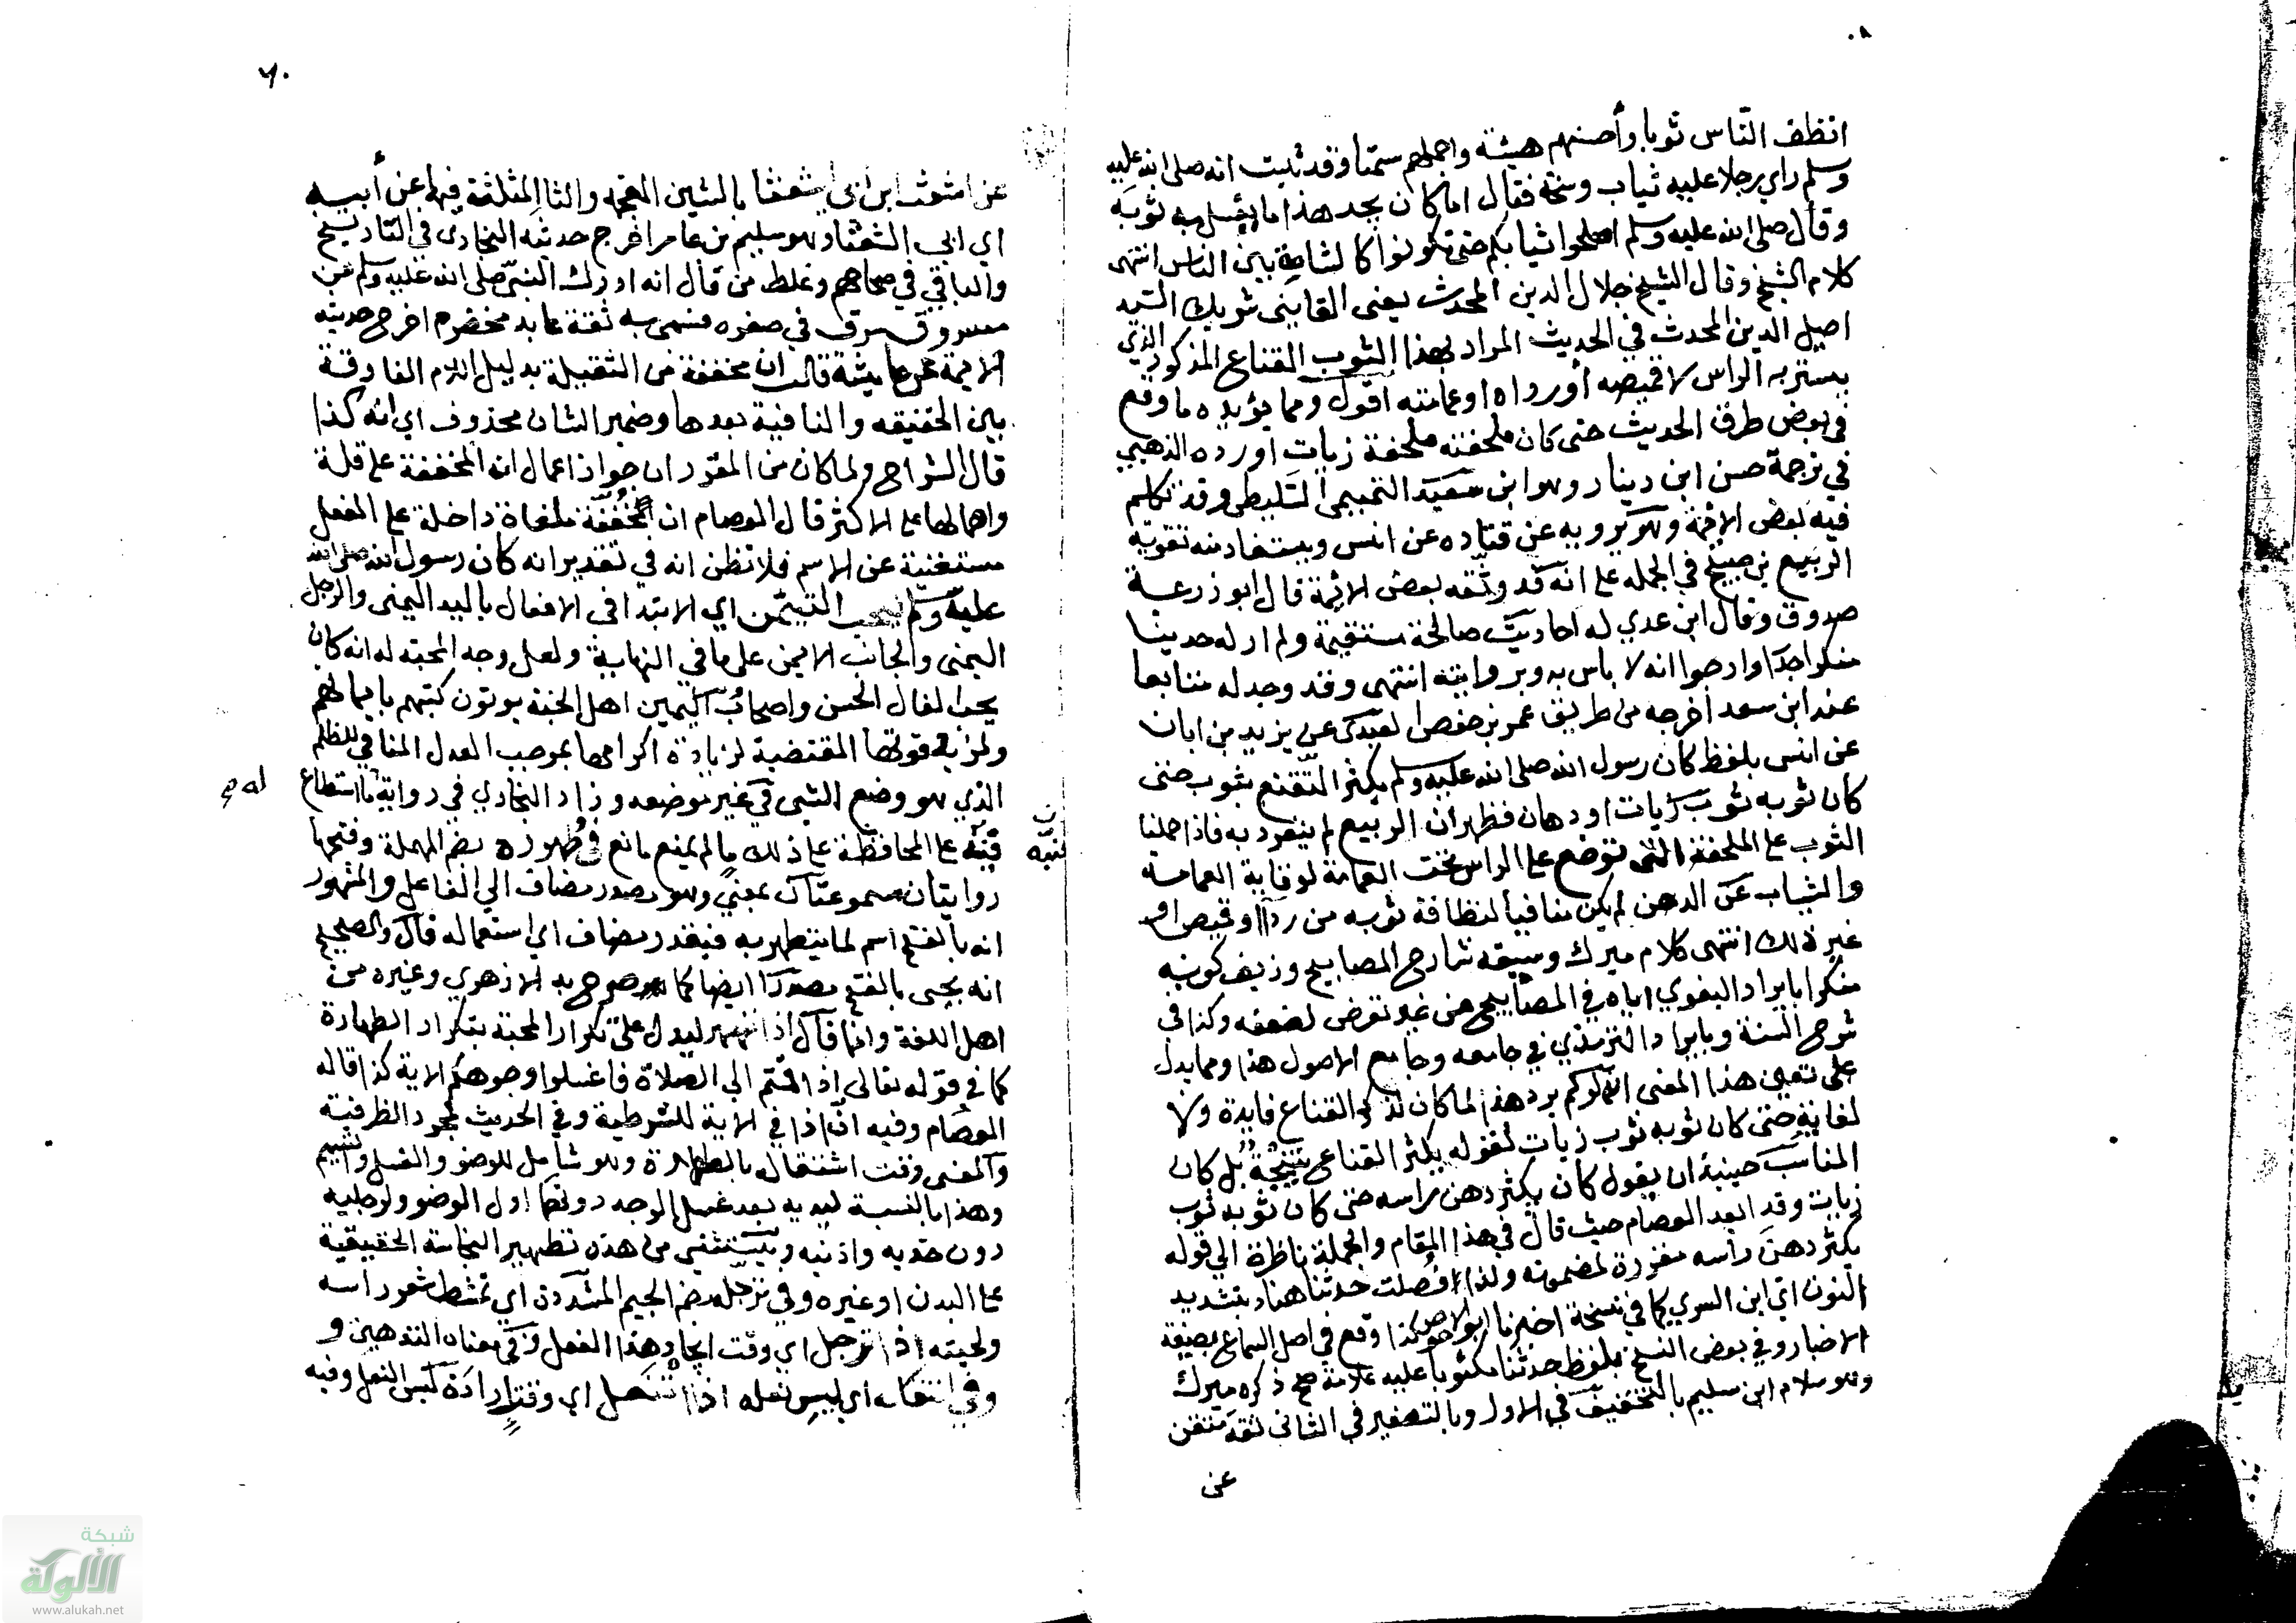 انظف الناس ثوبا وأحسنهم هيئة واجملهم سمتا وقد ثبت انه صلى الله عليه
وسلم راي رجلا عليه ثياب وسخة فقال اما كان يجد هذا ما يغسل به ثوبه
وقال صلى الله عليه وسلم اصلحوا ثيابكم حتى تكونوا كالشامة بين الناس انتهى
كلام الشيخ وقال الشيخ جلال الدين المحدث يعنى القاينى شريك السيد
اصيل الدين المحدث في الحديث المراد بهذا الثوب القناع المذكور الذي
يستر به الراس لا قميصه أو رداه او عمامته اقول ومما يؤيده ما وقع
في بعض طرق الحديث حتى كان ملحفته ملحفة زيات اورده الذهبي
في ترجمة حسن ابن دينار وهو ابن سعيد التميمي السليطي وقد تكلم
فيه بعض الائمة وهو يرويه عن قتاده عن انس ويستفاد منه تقوية
الربيع بن صبيح في الجمله على انه قد وثقه بعض الائمة قال ابو ذرعة
صدوق وقال ابن عدي له احاديث صالحة مستقيمة ولم ار له حديثا
منكرا جدا وارجوا انه لا باس به وبرواياته انتهى وقد وجد له متابعا
عند ابن سعد اخرجه من طريق عمر بن حفص العبدى عن يزيد بن ابان
عن انس بلفظ كان رسول الله صلى الله عليه وسلم يكثر التقنع بثوب حتى
كان ثوبه ثوب زيات او دهان فظهر ان الربيع لم ينفرد به فاذا حملنا
الثوب على الملحفة التى توضع على الراس تحت العمامة لوقاية العمامة
والثياب عن الدهن لم يكن منافيا لنظافة ثوبه من رداٍ او قميص او
غير ذلك انتهى كلام ميرك وسبقه شارح المصابيح وزيف كونه
منكرا بايراد البغوي اياه في المصابيح من غير تعرض لضعفه وكذا في
شرح السنة وبايراد الترمذي في جامعه وجامع الاصول هذا ومما يدل
على تعين هذا المعنى انه لو لم يرد هذا لما كان لذكر القناع فايدة ولا
لغاية حتى كان ثوبه ثوب زيات لقوله يكثر القناع نتيجة بل كان
المناسب حينيذ ان يقول كان يكثر دهن راسه حتى كان ثوبه ثوب
زيات وقد ابعد العصام حيث قال في هذا المقام والجملة ناظرة الي قوله
يكثر دهن رأسه مقررة لمضمونه ولذا فصلت حدثنا هناد بتشديد
النون اي ابن السري كما في نسخة اخبرنا ابو الاحوص كذا وقع في اصل السماع بصيغة
الاخبار وفي بعض النسخ بلفظ حدثنا مكتوبا عليه علامة صح ذكره ميرك
وهو سلام ابن سليم بالتخفيف في الاول وبالتصغير في الثاني ثقة متقن
عن
عن اشعث ابن ابي الشعثا بالشين المعجمه والثا المثلثة فيهما عن أبيه
اي ابي الشعثاء وهو سليم بن عامر اخرج حديثه البخاري في التاريخ
والباقي في صحاحهم وغلط من قال انه ادرك النبي صلى الله عليه وسلم عن
مسروق سرق في صغره فسمى به ثقة عابد مخضرم اخرج حديثه
الائمة عن عايشة قالت ان مخففة من الثقيلة بدليل اللام الفارقة
بين الحقيقه والنافية بعدها وضمير الشان محذوف اي انه كذا
قال الشراح ولما كان من المقرر ان جواز اعمال ان المخففة على قلة
واهمالها على الاكثر قال العصام ان المخففة ملغاة داخلة على الفعل
مستغنية عن الاسم فلا تظن انه في تقدير انه كان رسول الله صلى الله
عليه وسلم ليحب التيمن اي الابتدا في الافعال باليد اليمنى والرجل
اليمنى والجانب الايمن على ما في النهاية ولعل وجه المحبة له انه كان
يحب الفال الحسن واصحاب اليمين اهل الجنة يوتون كتبهم بايمانهم
ولمزية قوتها المقتضية لزيادة اكرامها بموجب العدل المنافي للظلم
الذي هو وضع الشي في غير موضعه وزاد البخاري في رواية ما استطاع
فنبه على المحافظة على ذلك ما لم يمنع مانع في طهوره بضم المهملة وفتحها
روايتان مسموعتان بمعنى وهو مصدر مضاف الي الفاعل والمشهور
انه بالفتح اسم لما يتطهر به فيقدر مضاف اي استعماله قال والصحيح
انه يجى بالفتح مصدرا ايضا كما صرح به الازهري وغيره من
اهل اللغة وانما قال اذا تطهر ليدل على تكرار المحبة بتكرار الطهارة
كما في قوله تعالى اذا قمتم الى الصلاة فاغسلوا وجوهكم الاية كذا قاله
العصام وفيه ان اذا في الاية للشرطية وفي الحديث لمجرد الظرفية
والمعنى وقت اشتغاله بالطهارة وهو شامل للوضو والغسل والتيمم
وهذا بالنسبة ليديه بعد غسل الوجه دونهما اول الوضو ولرجليه
دون خديه واذنيه ويستثنى من هذه تطهير النجاسة الحقيقية
على البدن او غيره وفي ترجله بضم الجيم المشددة اي تمشط شعر راسه
ولحيته اذا ترجل اي وقت ايجاد هذا الفعل وفي معناه التدهين و
وفي انتعاله اي لبس نعله اذا انتعل اي وقت ارادة لبس النعل وفيه
شبكة
الألوكة
www.alukah.net